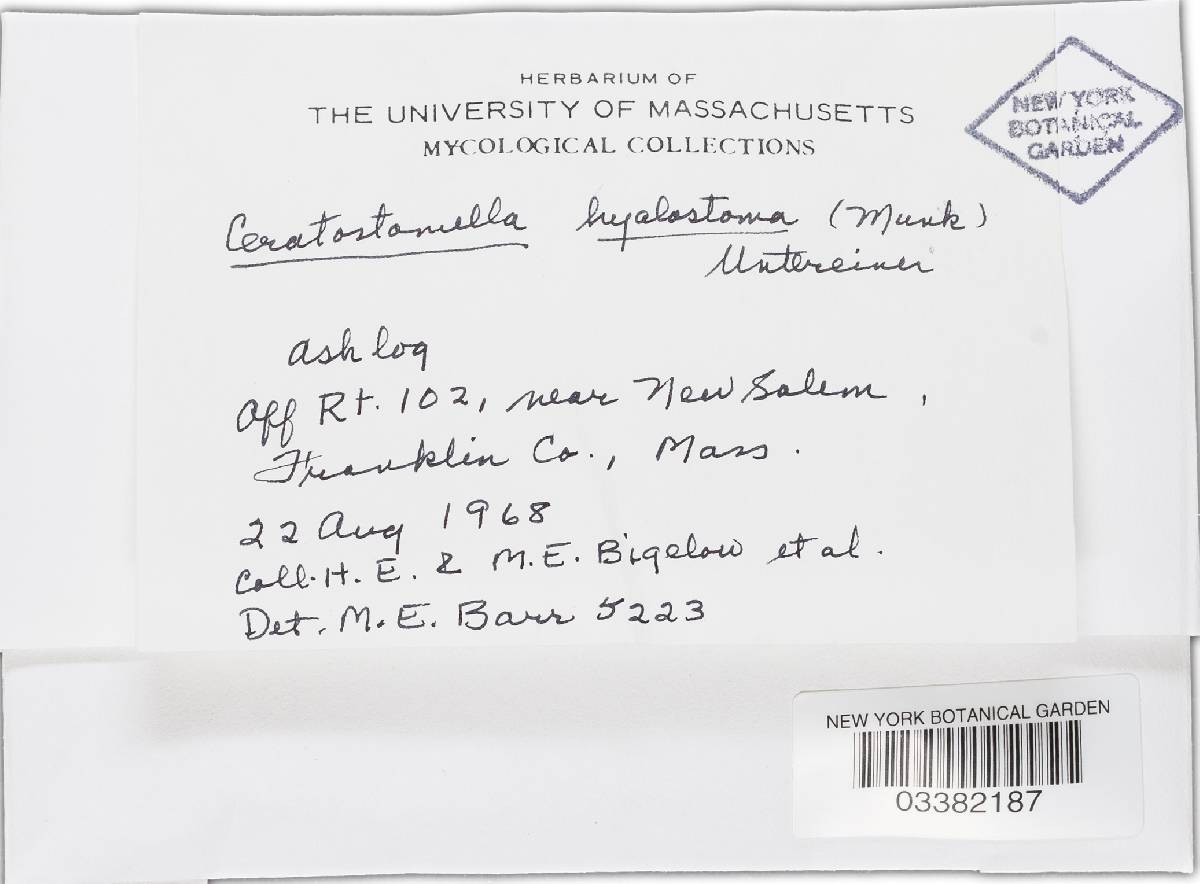 HERBARIUM OF
THE UNIVERSITY OF MASSACHUSETTS
MYCOLOGICAL COLLECTIONS
NEW YORK
BOTANICAL
GARDEN
Ceratostomella hyalostoma (Munk)
Untereiner
ash log
Off Rt. 102, near New Salem,
Franklin Co., Mass.
22 Aug 1968
Coll. H. E. & M. E. Bigelow et al.
Det. M. E. Barr 5223
NEW YORK BOTANICAL GARDEN
03382187